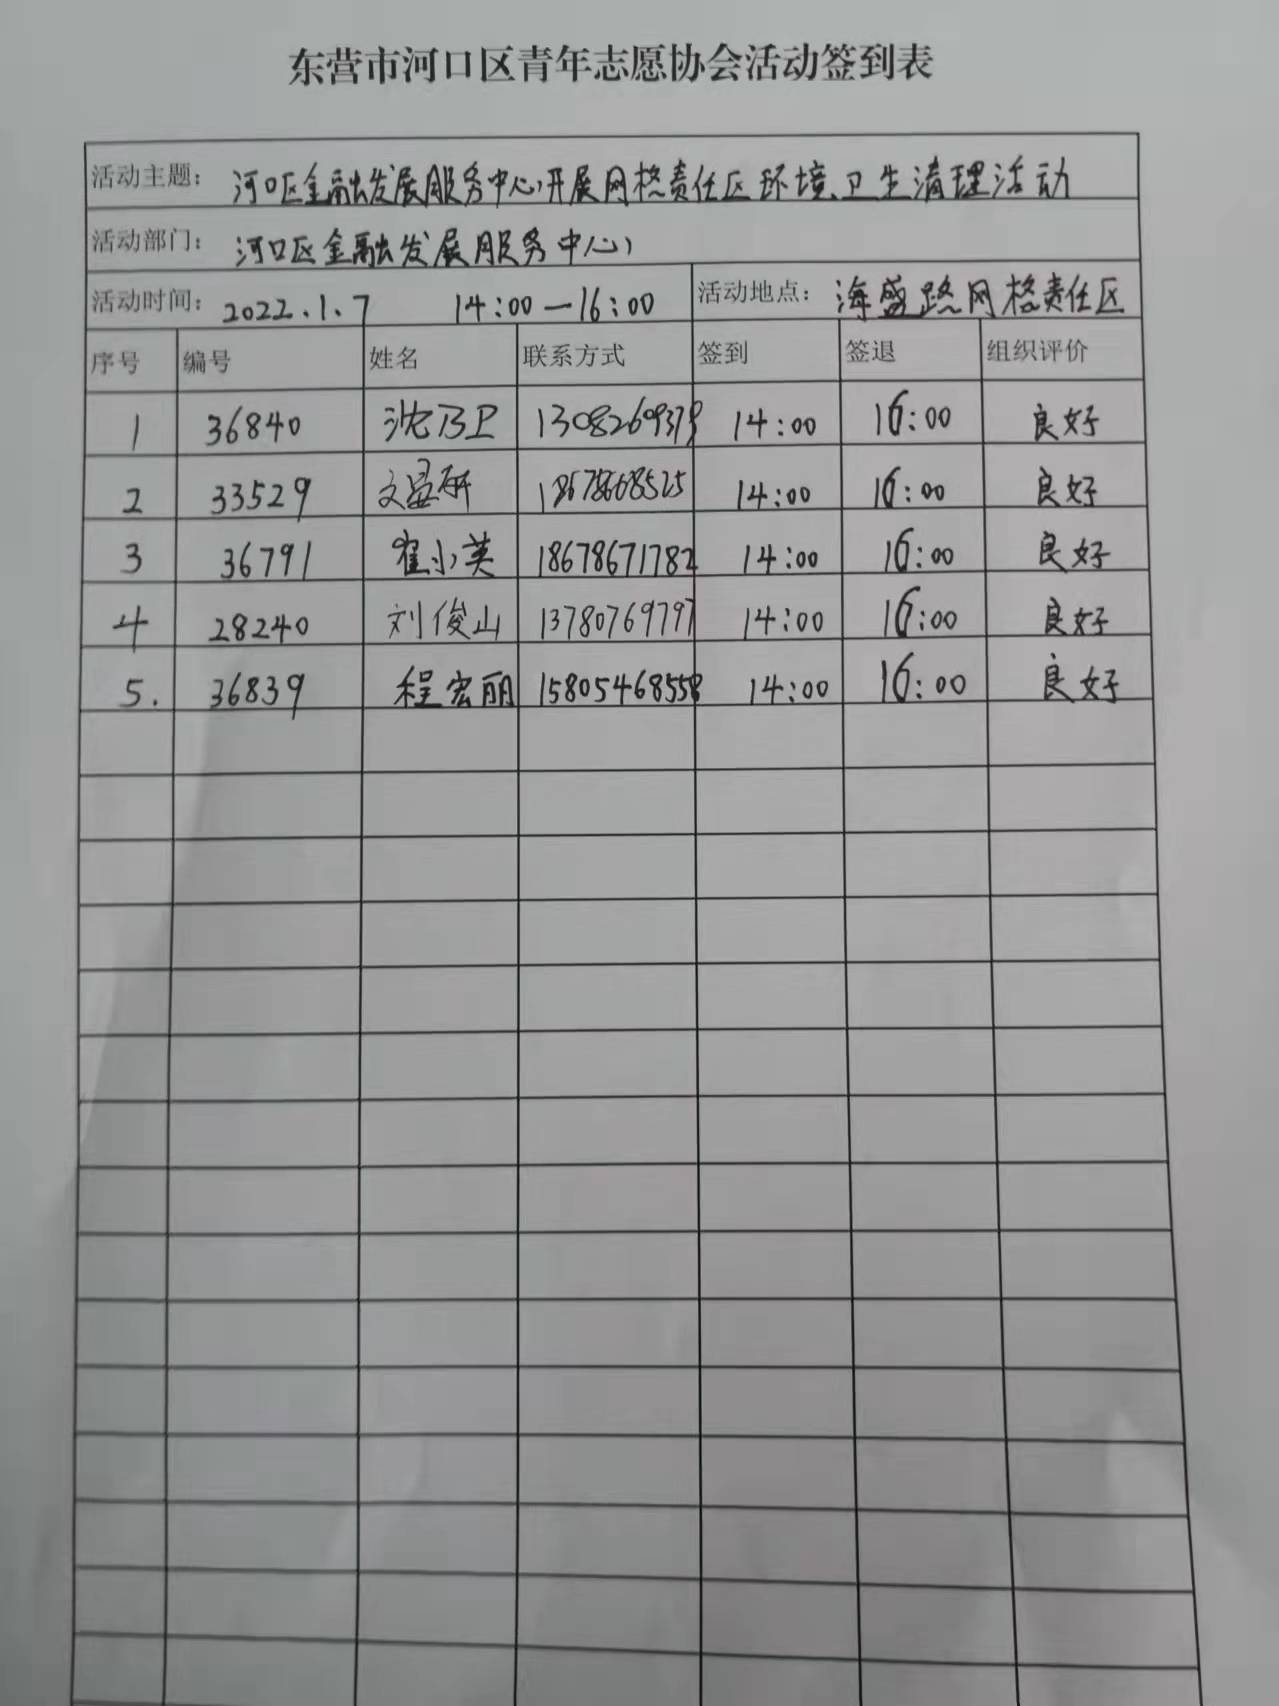 东营市河口区青年志愿协会活动签到表
活动主题： 河口区金融发展服务中心开展网格责任区环境卫生清理活动
活动部门： 河口区金融发展服务中心
活动时间： 2022.1.7 14:00—16:00 活动地点： 海盛路网格责任区
序号 编号 姓名 联系方式 签到 签退 组织评价
1 36840 沈乃卫 14:00 16:00 良好
2 33529 18678668525 14:00 16:00 良好
3 36791 崔小英 18678671782 14:00 16:00 良好
4 28240 刘俊山 13780769797 14:00 16:00 良好
5. 36839 程宏丽 15805468558 14:00 16:00 良好